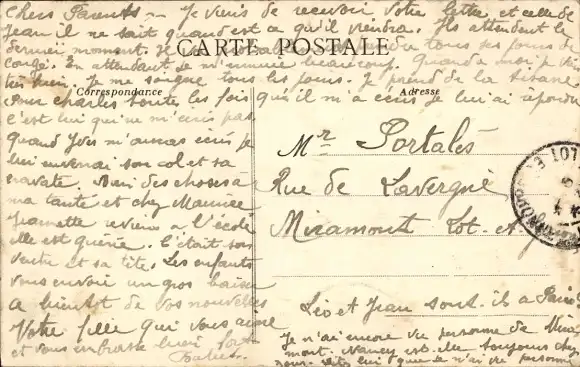 Chers Parents — Je viens de recevoir votre lettre et celle de
Jean il ne sait quand est ce qu'il viendra. Ils attendent le
dernier moment. Il tous ses jours de
congé. En attendant je m'ennuie beaucoup. Quand a moi je
très bien, Je me soigne tous les jours. Je prend de la tisane
CARTE POSTALE
Correspondance
Adresse
Pour Charles toute les fois qu'il m'a écris je lui ai répondu
c'est lui qui ne m'écris pas
quand vous m'aurez écris je
lui enverrai son col et sa
cravate. Bien des choses à
ma tante et chez Maurice
Jeannette reviens a l'école
elle est guérie. C'était son
ventre et sa tête. Les enfants
vous envoie un gros baiser
A bientot de vos nouvelles
Votre fille qui vous aime
et vous embrasse bien fort
Mr Portalés
Rue de Lavergne
Miramont Lot. et
LOT E
Léo et Jean sont-ils a Paris
Je n'ai encore vu personne de Mira
mont. Nancy est-elle toujours chez
vous. Dites lui que je n'ai vu personne